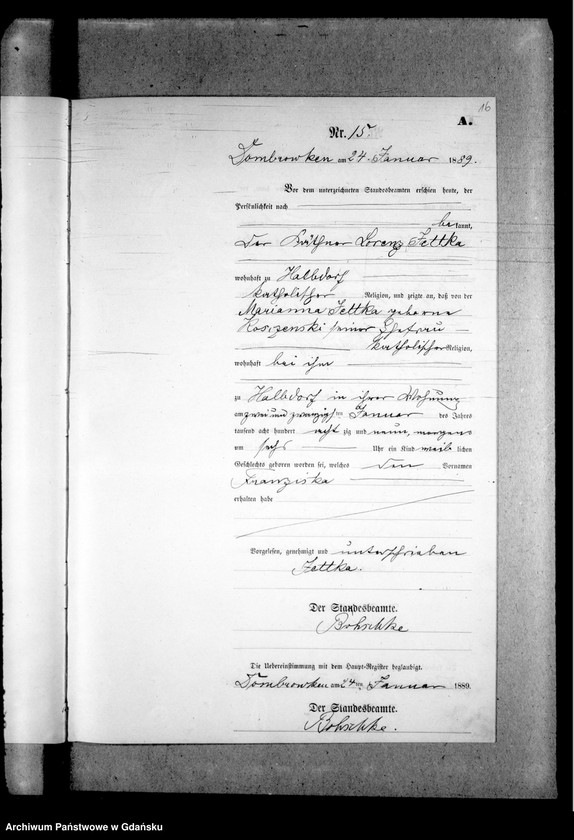 16
A.
Nr. 15.
Dombrowken am 24. Januar 1889.
Vor dem unterzeichneten Standesbeamten erschien heute, der
Persönlichkeit nach
bekannt,
Der Käthner Lorenz Zettka
wohnhaft zu Halbdorf
katholischer Religion, und zeigte an, daß von der
Marianna Zettka geborene
seiner Ehefrau
katholischer Religion,
wohnhaft bei ihm
zu Halbdorf in ihrer Wohnung
am zwei und zwanzigsten Januar des Jahres
tausend acht hundert achtzig und neun, morgens
um sechs Uhr ein Kind weiblichen
Geschlechts geboren worden sei, welches den Vornamen
Franziska
erhalten habe
Vorgelesen, genehmigt und unterschrieben
Zettka.
Der Standesbeamte.
Bohschke
Die Uebereinstimmung mit dem Haupt-Register beglaubigt.
Dombrowken am 24ten Januar 1889.
Der Standesbeamte.
Bohschke.
Archiwum Państwowe w Gdańsku